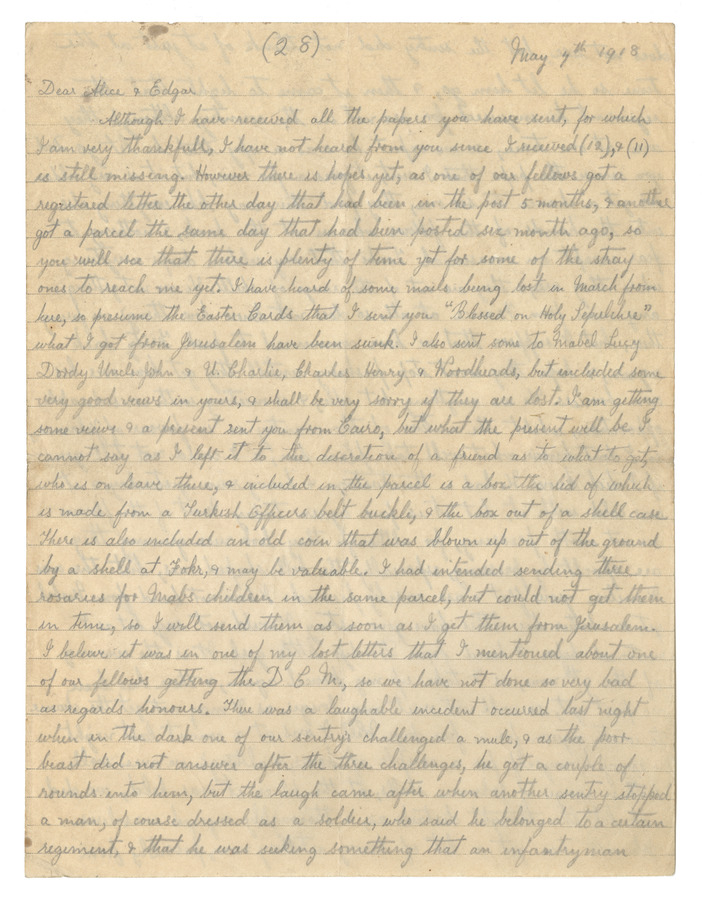 (28)
May 7th 1918
Dear Alice & Edgar
Although I have received all the papers you have sent, for which
I am very thankfull, I have not heard from you since I received (12), & (11)
is still missing. However there is hopes yet, as one of our fellows got a
registered letter the other day that had been in the post 5 months, & another
got a parcel the same day that had been posted six month ago, so
you will see that there is plenty of time yet for some of the stray
ones to reach me yet. I have heard of some mails being lost in March from
here, so presume the Easter Cards that I sent you "Blessed on Holy Sepulchre"
what I got from Jerusalem have been sunk. I also sent some to Mabel Lucy
Dordy Uncle John & U. Charlie, Charles Henry & Woodheads, but included some
very good views in yours, & shall be very sorry if they are lost. I am getting
some views & a present sent you from Cairo, but what the present will be I
cannot say as I left it to the discretion of a friend as to what to get,
who is on leave there, & included in the parcel is a box the lid of which
is made from a Turkish Officers belt buckle, & the box out of a shell case
There is also included an old coin that was blown up out of the ground
by a shell at Fokr, & may be valuable. I had intended sending three
rosaries for Mabs children in the same parcel, but could not get them
in time, so I will send them as soon as I get them from Jerusalem.
I believe it was in one of my lost letters that I mentioned about one
of our fellows getting the D C M., so we have not done so very bad
as regards honours. There was a laughable incident occurred last night
when in the dark one of our sentry's challenged a mule, & as the poor
beast did not answer after the three challenges, he got a couple of
rounds into him, but the laugh came after when another sentry stopped
a man, of course dressed as a soldier, who said he belonged to a certain
regiment, & that he was seeking something that an infantryman